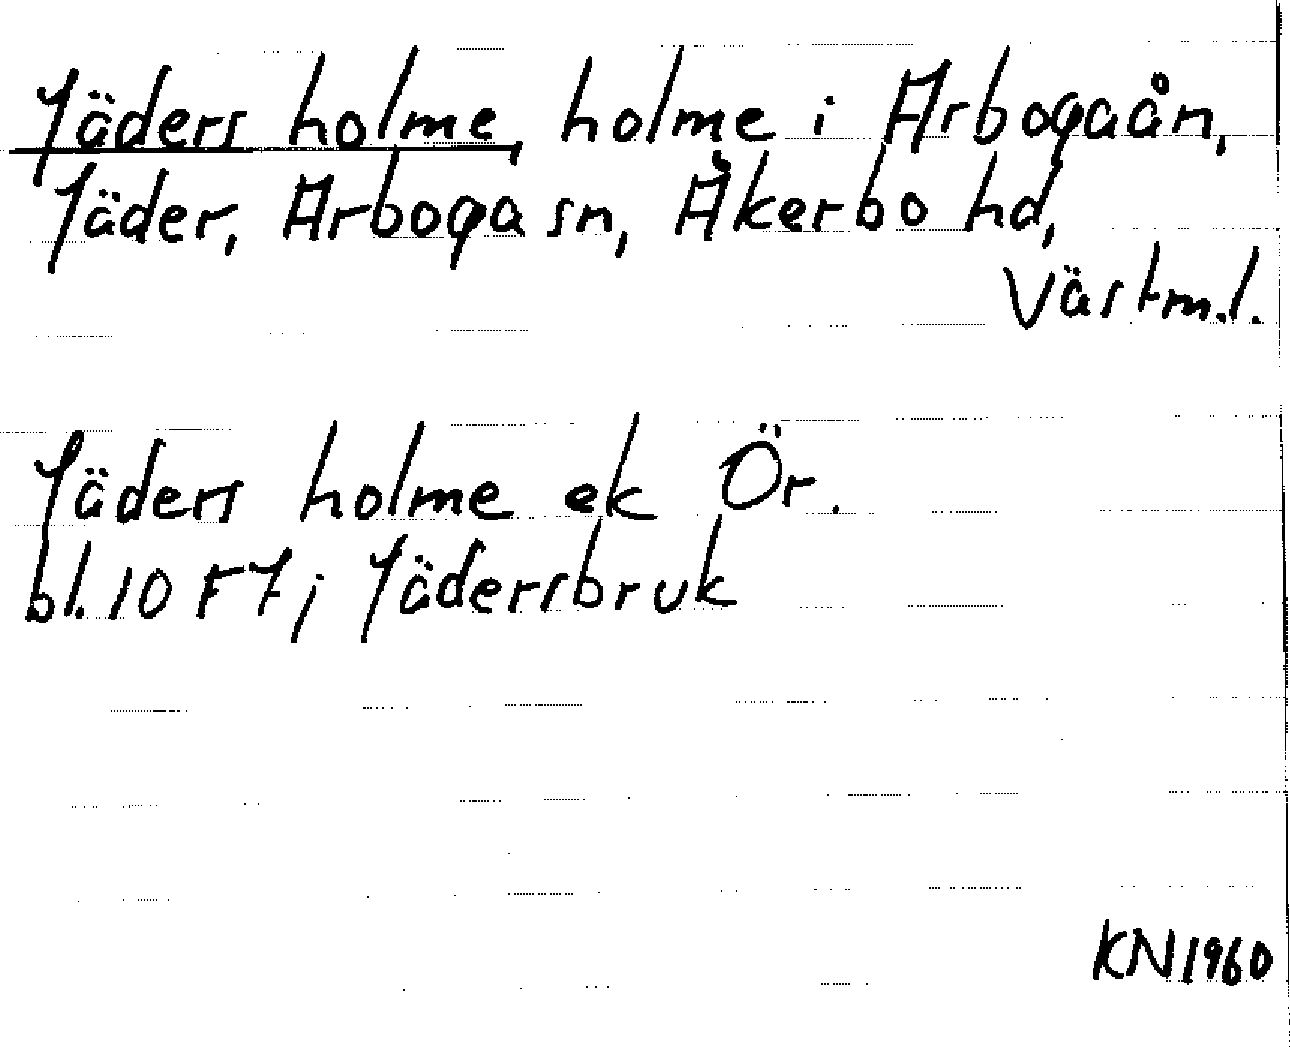 Jäders holme, holme i Arbogaån,
Jäder, Arboga sn, Åkerbo hd,
Västm.l.
Jäders holme ek Ör.
bl. 10 F 7 j Jädersbruk
KN 1960